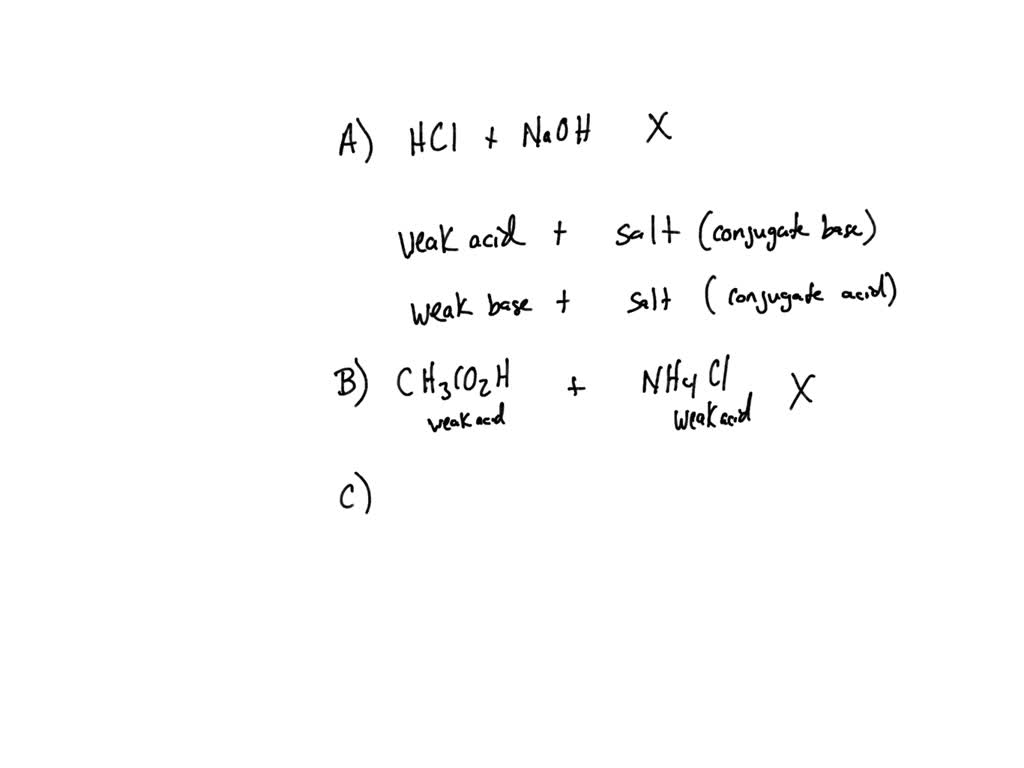 A) HCl + NaOH X
weak acid + salt (conjugate base)
weak base + salt (conjugate acid)
B) CH3CO2H + NH4Cl X
weak acid weak acid
C)